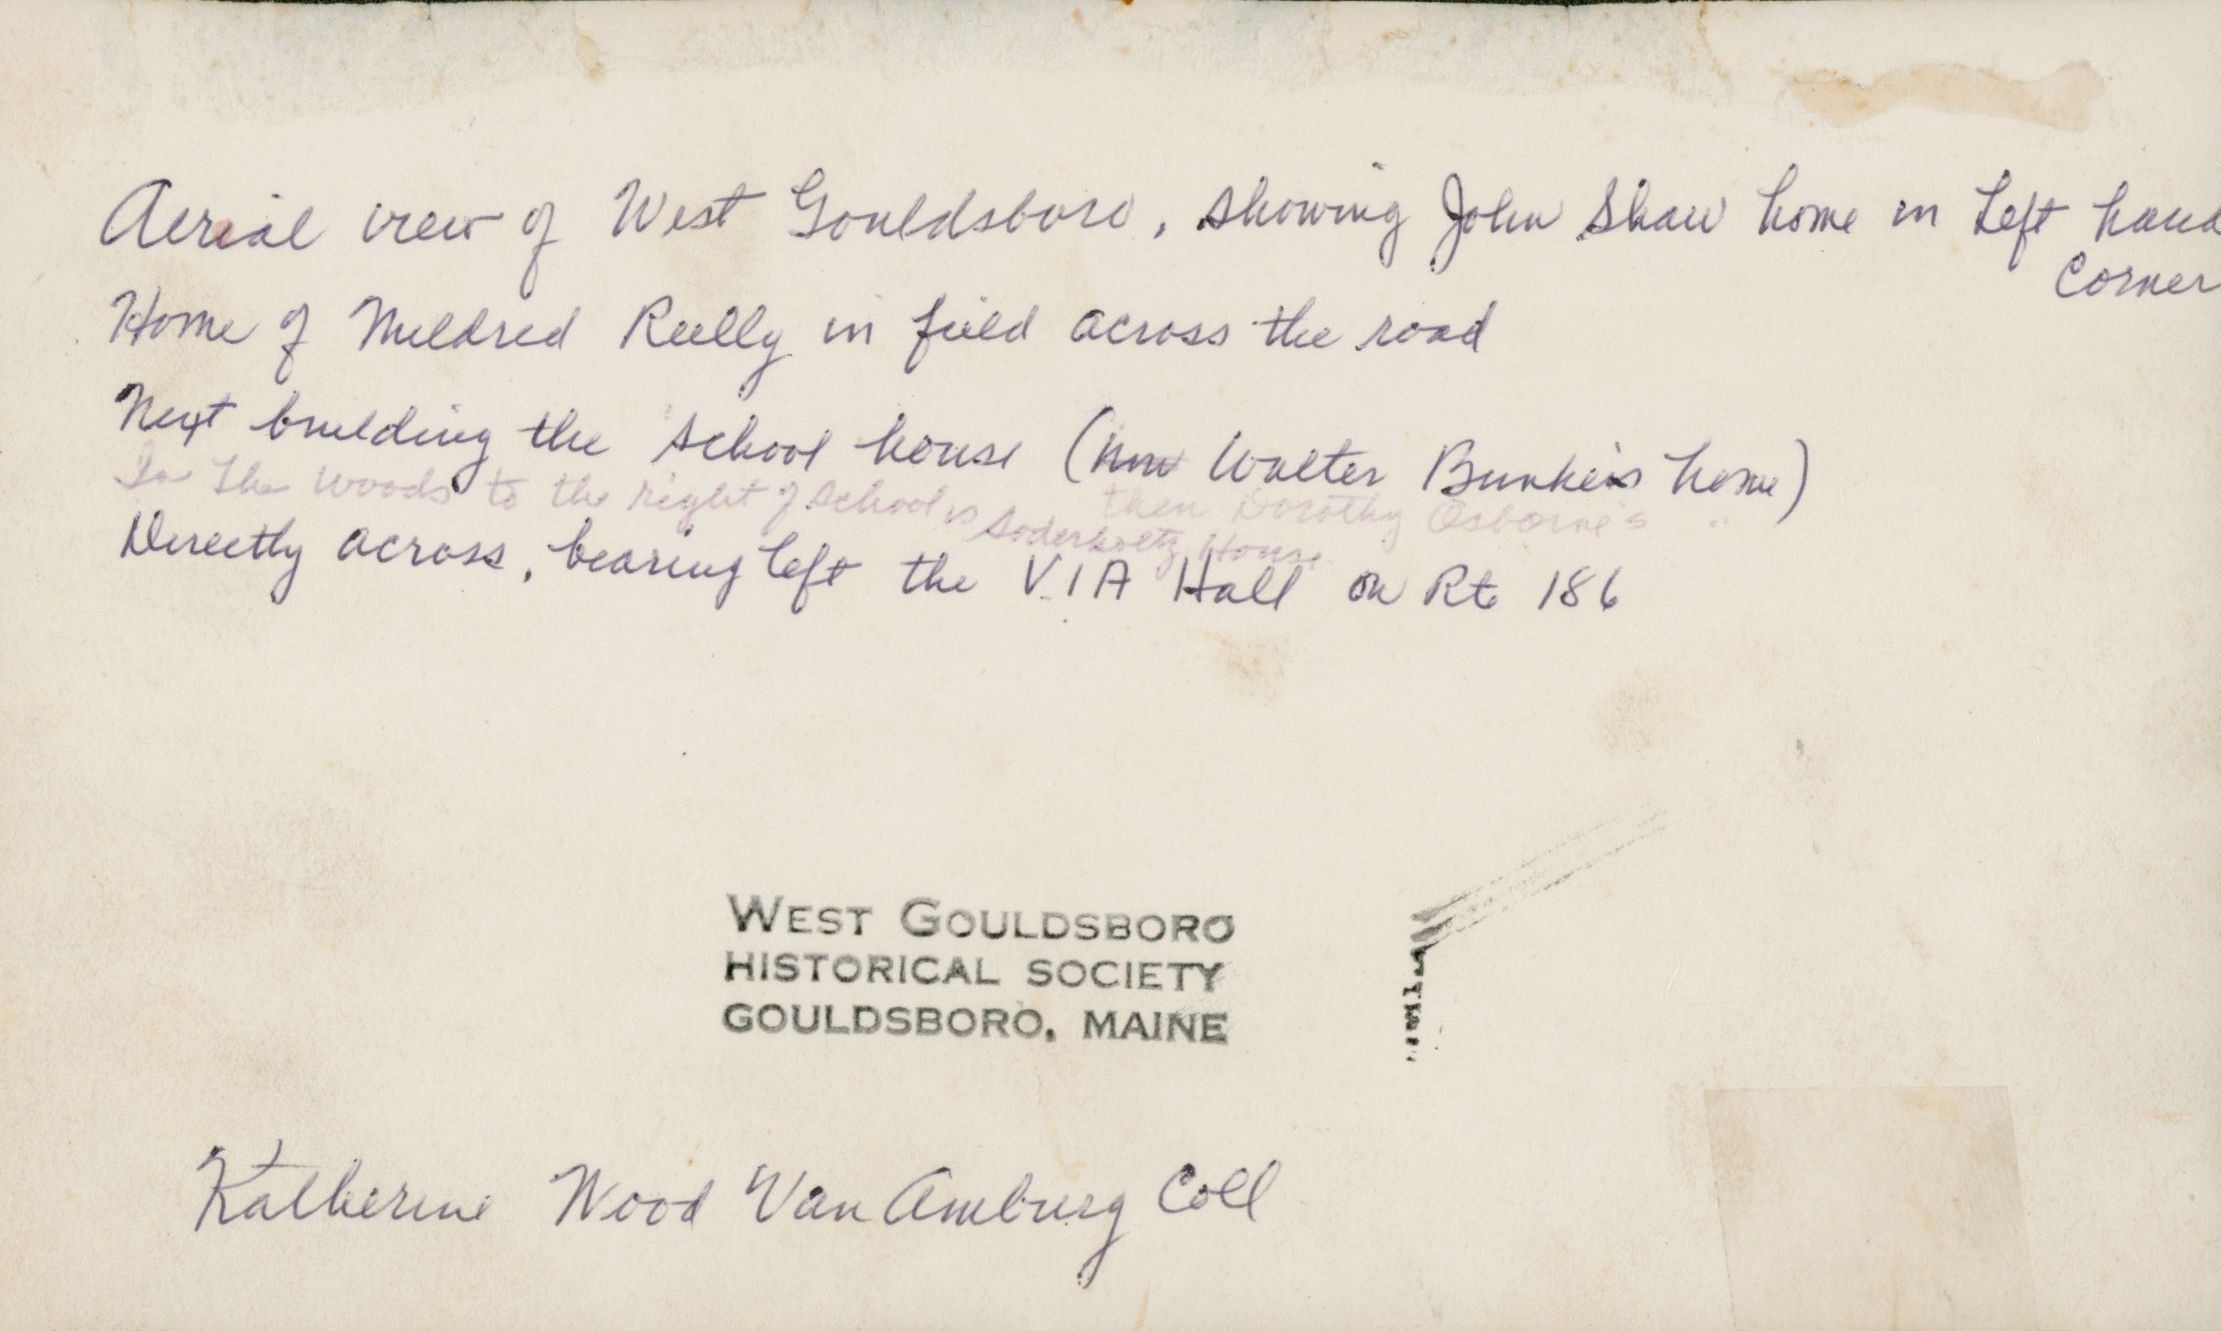 Aerial view of West Gouldsboro, showing John Shaw home in Left hand
Corner
Home of Mildred Reilly in field across the road
Next building the school house (now Walter Bunker's home)
In The woods to the right of School is Soderholtz House
then Dorothy Osborne's "
Directly across, bearing left the V.I A Hall on Rt 186
WEST GOULDSBORO
HISTORICAL SOCIETY
GOULDSBORO, MAINE
Katherine Wood Van Amburg Coll